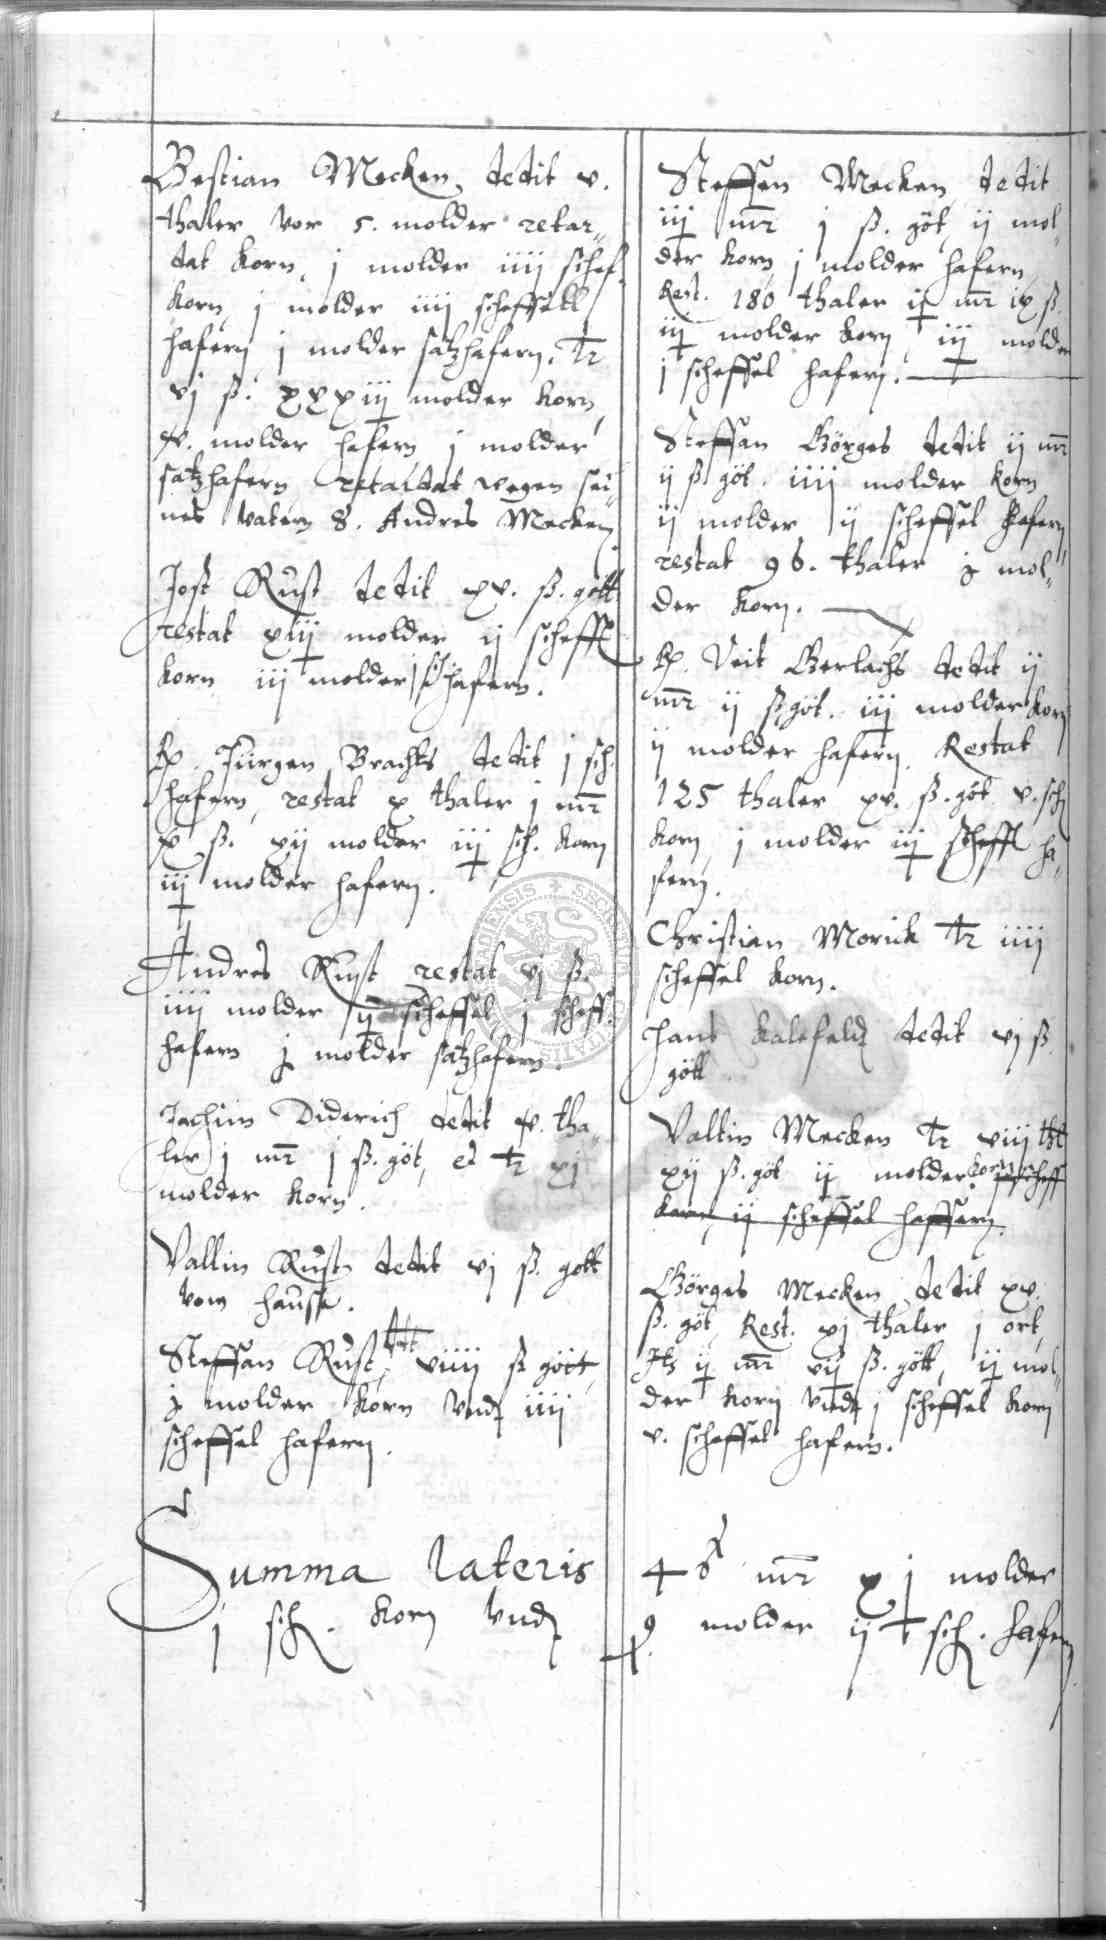 Bestian Mecken dedit v.
thaler vor 5. molder retar-
dat korn, j molder iiij schef.
korn, j molder iiij scheffell
hafern j molder satzhafern. Tr
vj ß. xxxiij molder korn,
xv. molder hafern j molder
satzhafern retardat wegen sei-
nes vatern S. Andres Mecken
Jost Rust dedit xv. ß. gött
restat xiij molder ij scheffl
korn iij molder j sch hafern.
Jürgen Brachts dedit j sch.
hafern, restat x thaler j mr
x ß. xij molder iij sch. korn
iij molder hafern.
Andres Rust restat vj ß.
iiij molder ij scheffel j scheff.
hafern molder satzhafern.
Jachim Diderich dedit xv. tha-
ler j mr j ß. göt, et Tr xj
molder korn.
Valtin Rust dedit vj ß. gott
vom hausse.
Steffan Rust viiij ß gött,
molder korn vnd iiij
scheffel hafern.
Summa lateris
j sch. korn vnd
Steffen Mecken dedit
iij mr j ß. göt, ij mol-
der korn j molder hafern
Rest. 180 thaler ij mr ix ß.
iij molder korn iij molder
j scheffel hafern.
Steffan Görges dedit ij mr
ij ß göt. iiij molder korn
ij molder ij scheffel hafern
restat 96. thaler mol-
der korn.
Veit Gerlachs dedit ij
mr ij ß göt. iij molder korn
ij molder hafern. Restat
125 thaler xv. ß. göt v. sch
korn j molder iij scheffl ha-
fern.
Christian Morick Tr iiij
scheffel korn.
Hans Kalefeld dedit vj ß.
gött
Valtin Mecken Tr viij
xij ß. göt ij molder korn scheff
korn, ij scheffel haffern.
Görges Mecken dedit xv.
ß. göt, Rest. xj thaler j ort,
It ij mr vij ß. gött, ij mol-
der korn vnd j scheffel korn
v. scheffel hafern.
48 mr xj molder
9 molder ij sch. hafern